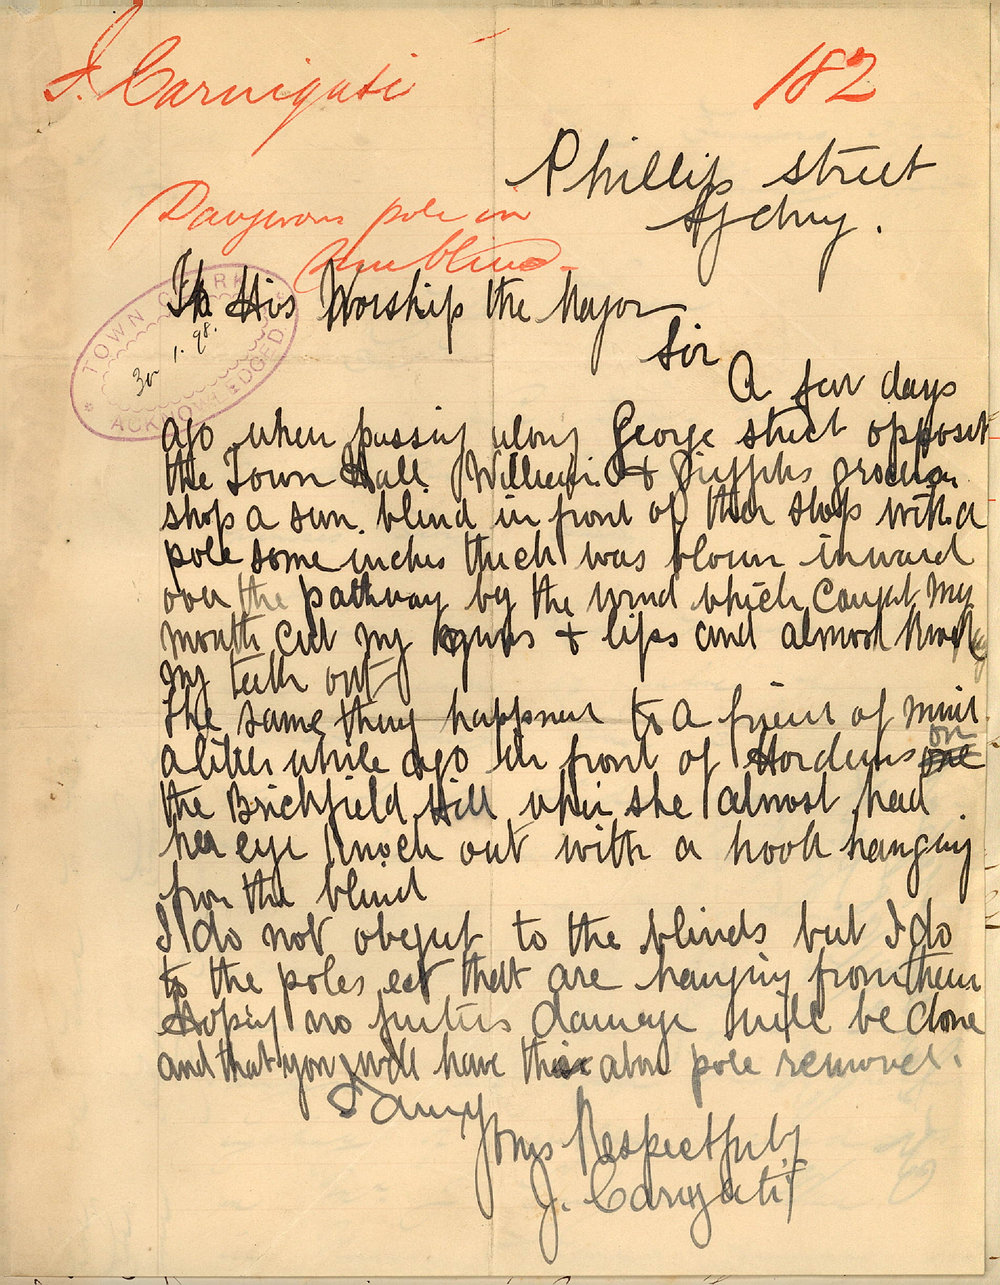 J. Carnigati
182
Phillip Street
Sydney.
Dangerous pole in
Sunblind.
TOWN CLERK
30.1.98.
ACKNOWLEDGED
To His Worship the Mayor
Sir
A few days
ago when passing along George street opposit
the Town Hall William & Griffths
shop a sun blind in front of ther shop with a
pole some inches thick was blown inward
over the pathway by the wind which caught my
mouth cut my gums & lips and almost knock
my teeth out
The same thing happned to a friend of mine
a little while ago in front of Horderns on
the Brickfield Hill when she almost had
her eye knock out with a hook hanging
from the blind
I do not object to the blinds but I do
to the poles ect that are hanging from them
Hoping no further damage will be done
and that you will have this above pole removed.
I am
Yours Respectfuly
J. Carnigati